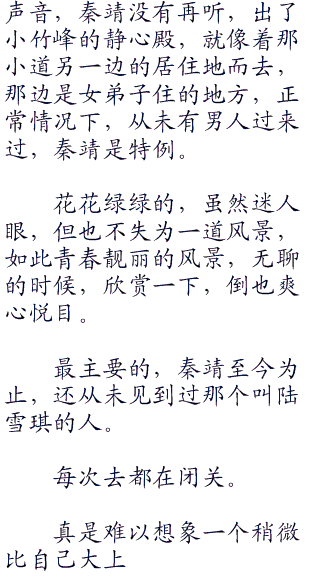 声音，秦靖没有再听，出了
小竹峰的静心殿，就像着那
小道另一边的居住地而去，
那边是女弟子住的地方，正
常情况下，从未有男人过来
过，秦靖是特例。
花花绿绿的，虽然迷人
眼，但也不失为一道风景，
如此青春靓丽的风景，无聊
的时候，欣赏一下，倒也爽
心悦目。
最主要的，秦靖至今为
止，还从未见到过那个叫陆
雪琪的人。
每次去都在闭关。
真是难以想象一个稍微
比自己大上